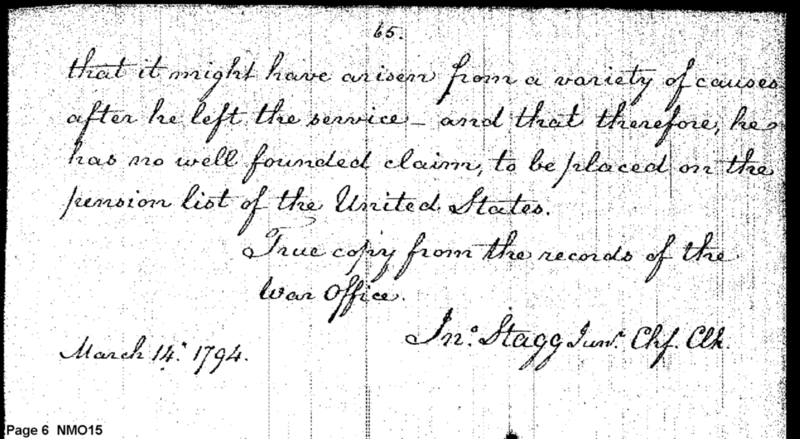 65.
that it might have arisen from a variety of causes
after he left the service – and that therefore, he
has no well founded claim, to be placed on the
pension list of the United States.
True copy from the records of the
War Office.
Jno. Stagg Junr. Chf. Clk.
March 14. 1794.
Page 6 NMO15